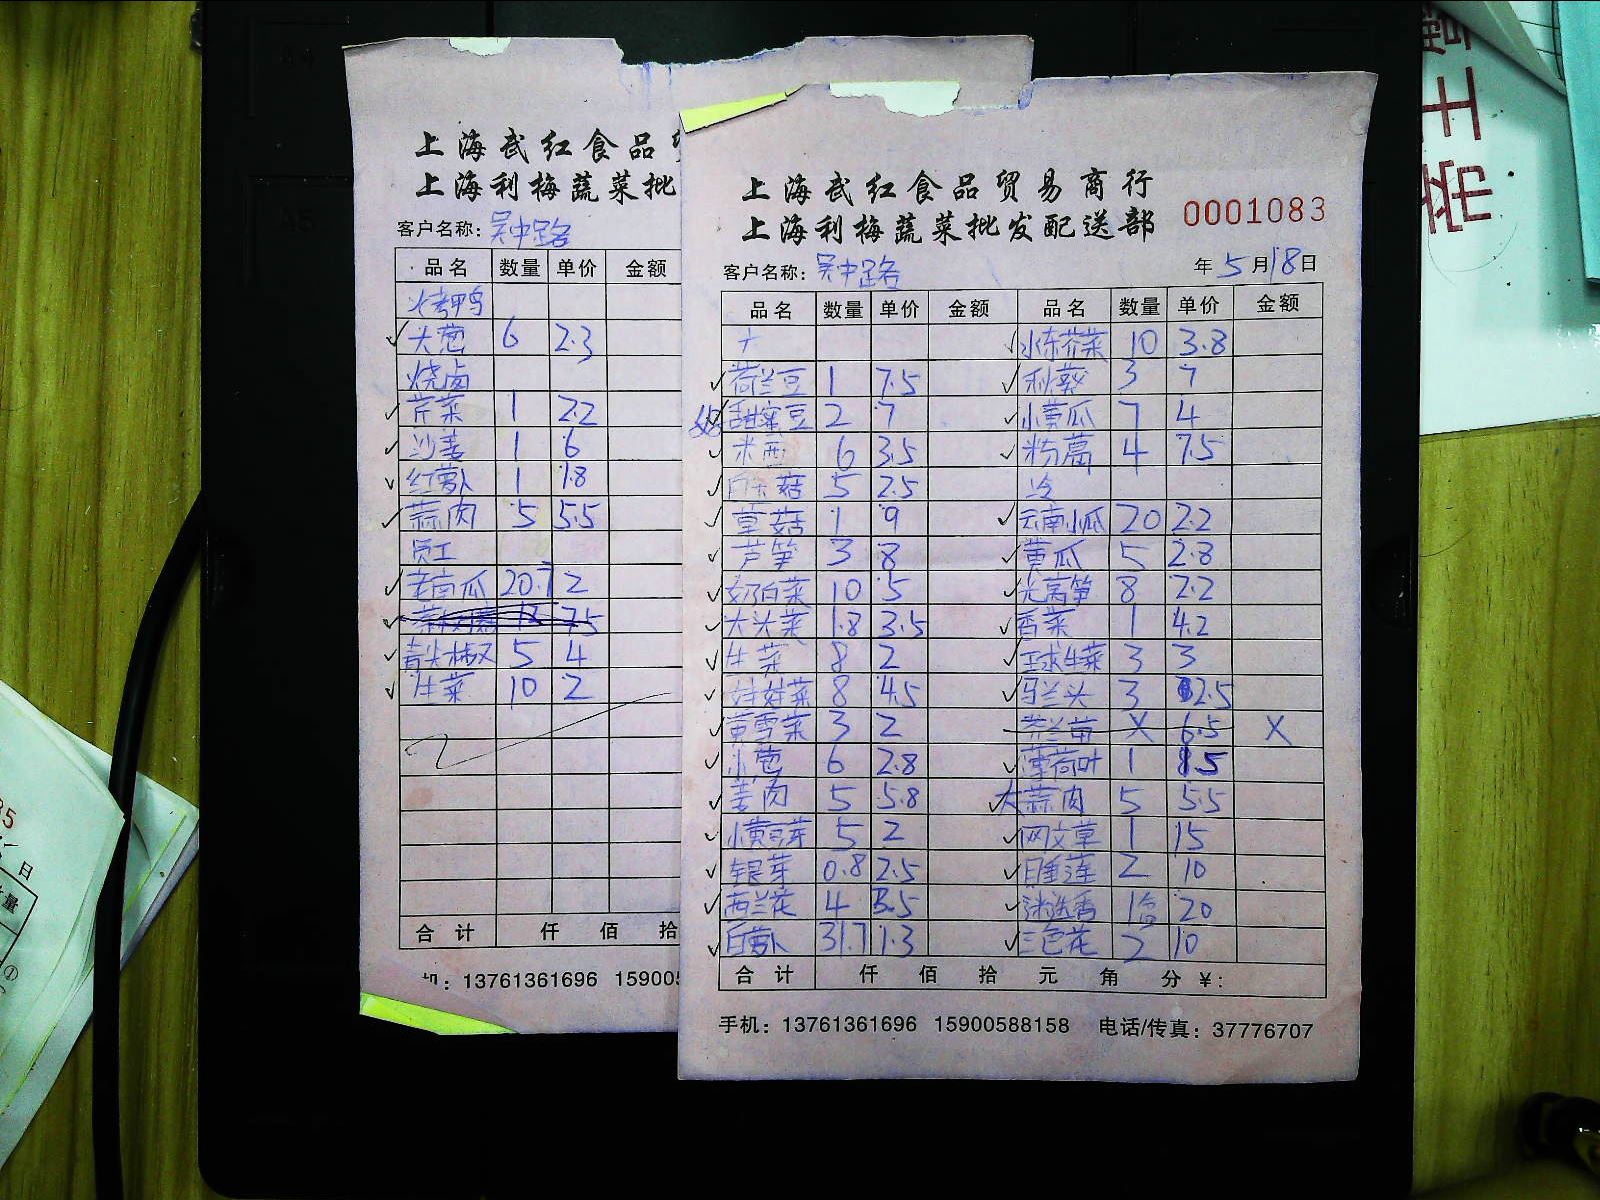 上海武红食品
上海利梅蔬菜批
客户名称：吴中路
品名 数量 单价 金额
火考鸭
大葱 6 2.3
烧卤
芹菜 1 2.2
沙姜 1 6
红萝卜 1 1.8
蒜肉 5 5.5
员工
老南瓜 20.7 2
青尖椒 5 4
生菜 10 2
合计 仟 佰 拾
机：13761361696 159005
上海武红食品贸易商行
上海利梅蔬菜批发配送部
0001083
客户名称：吴中路 年5月18日
品名 数量 单价 金额 品名 数量 单价 金额
冰冻芥菜 10 3.8
荷兰豆 1 7.5 秋葵 3 7
甜蜜豆 2 7 小黄瓜 7 4
米西 6 3.5 粉葛 4 7.5
白玉菇 5 2.5 冷
草菇 1 9 云南小瓜 20 2.2
芦笋 3 8 黄瓜 5 2.8
奶白菜 10 5 光莴笋 8 2.2
大头菜 1.8 3.5 香菜 1 4.2
生菜 8 2 球生菜 3 3
娃娃菜 8 4.5 马兰头 3 2.5
黄雪菜 3 2 X 6.5 X
小葱 6 2.8 薄荷叶 1 8.5
姜肉 5 5.8 大蒜肉 5 5.5
小黄豆芽 5 2 网文草 1 15
银芽 0.8 2.5 睡莲 2 10
西兰花 4 3.5 迷迭香 1盒 20
白萝卜 31.7 1.3 三色花 2 10
合计 仟 佰 拾 元 角 分 ￥：
手机：13761361696 15900588158 电话/传真：37776707
帝王
85
日
量